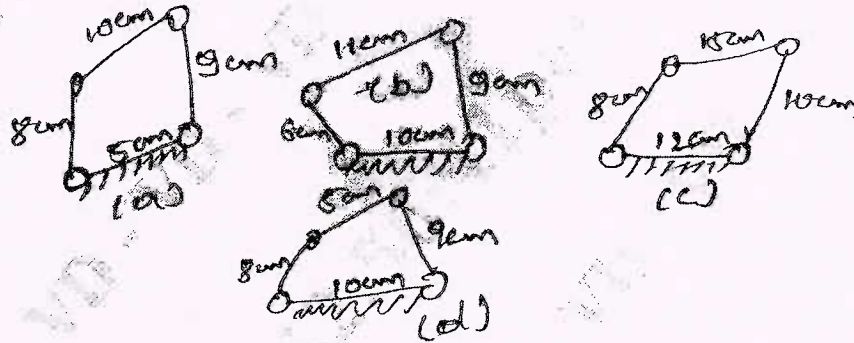 10cm
9cm
8cm
5cm
(a)
11cm
(b)
9cm
6cm
10cm
15cm
8cm
10cm
12cm
(c)
5cm
8cm
9cm
10cm
(d)